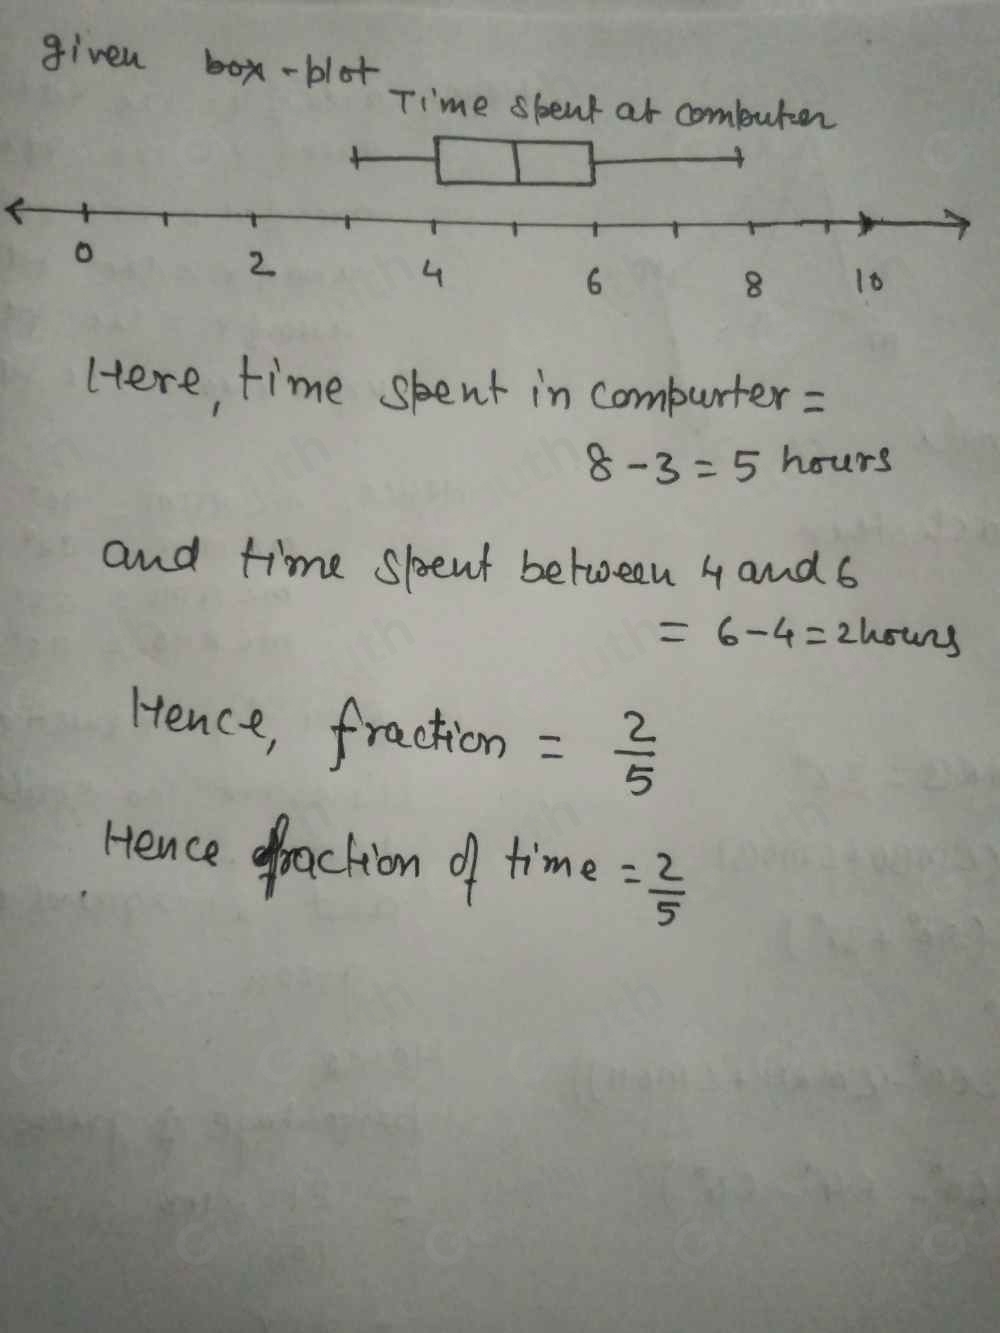 given box-plot
Time spent at computer
0 2 4 6 8 10
Here, time spent in compurter =
8 - 3 = 5 hours
and time spent between 4 and 6
= 6 - 4 = 2 hours
Hence, fraction = 2/5
Hence fraction of time = 2/5